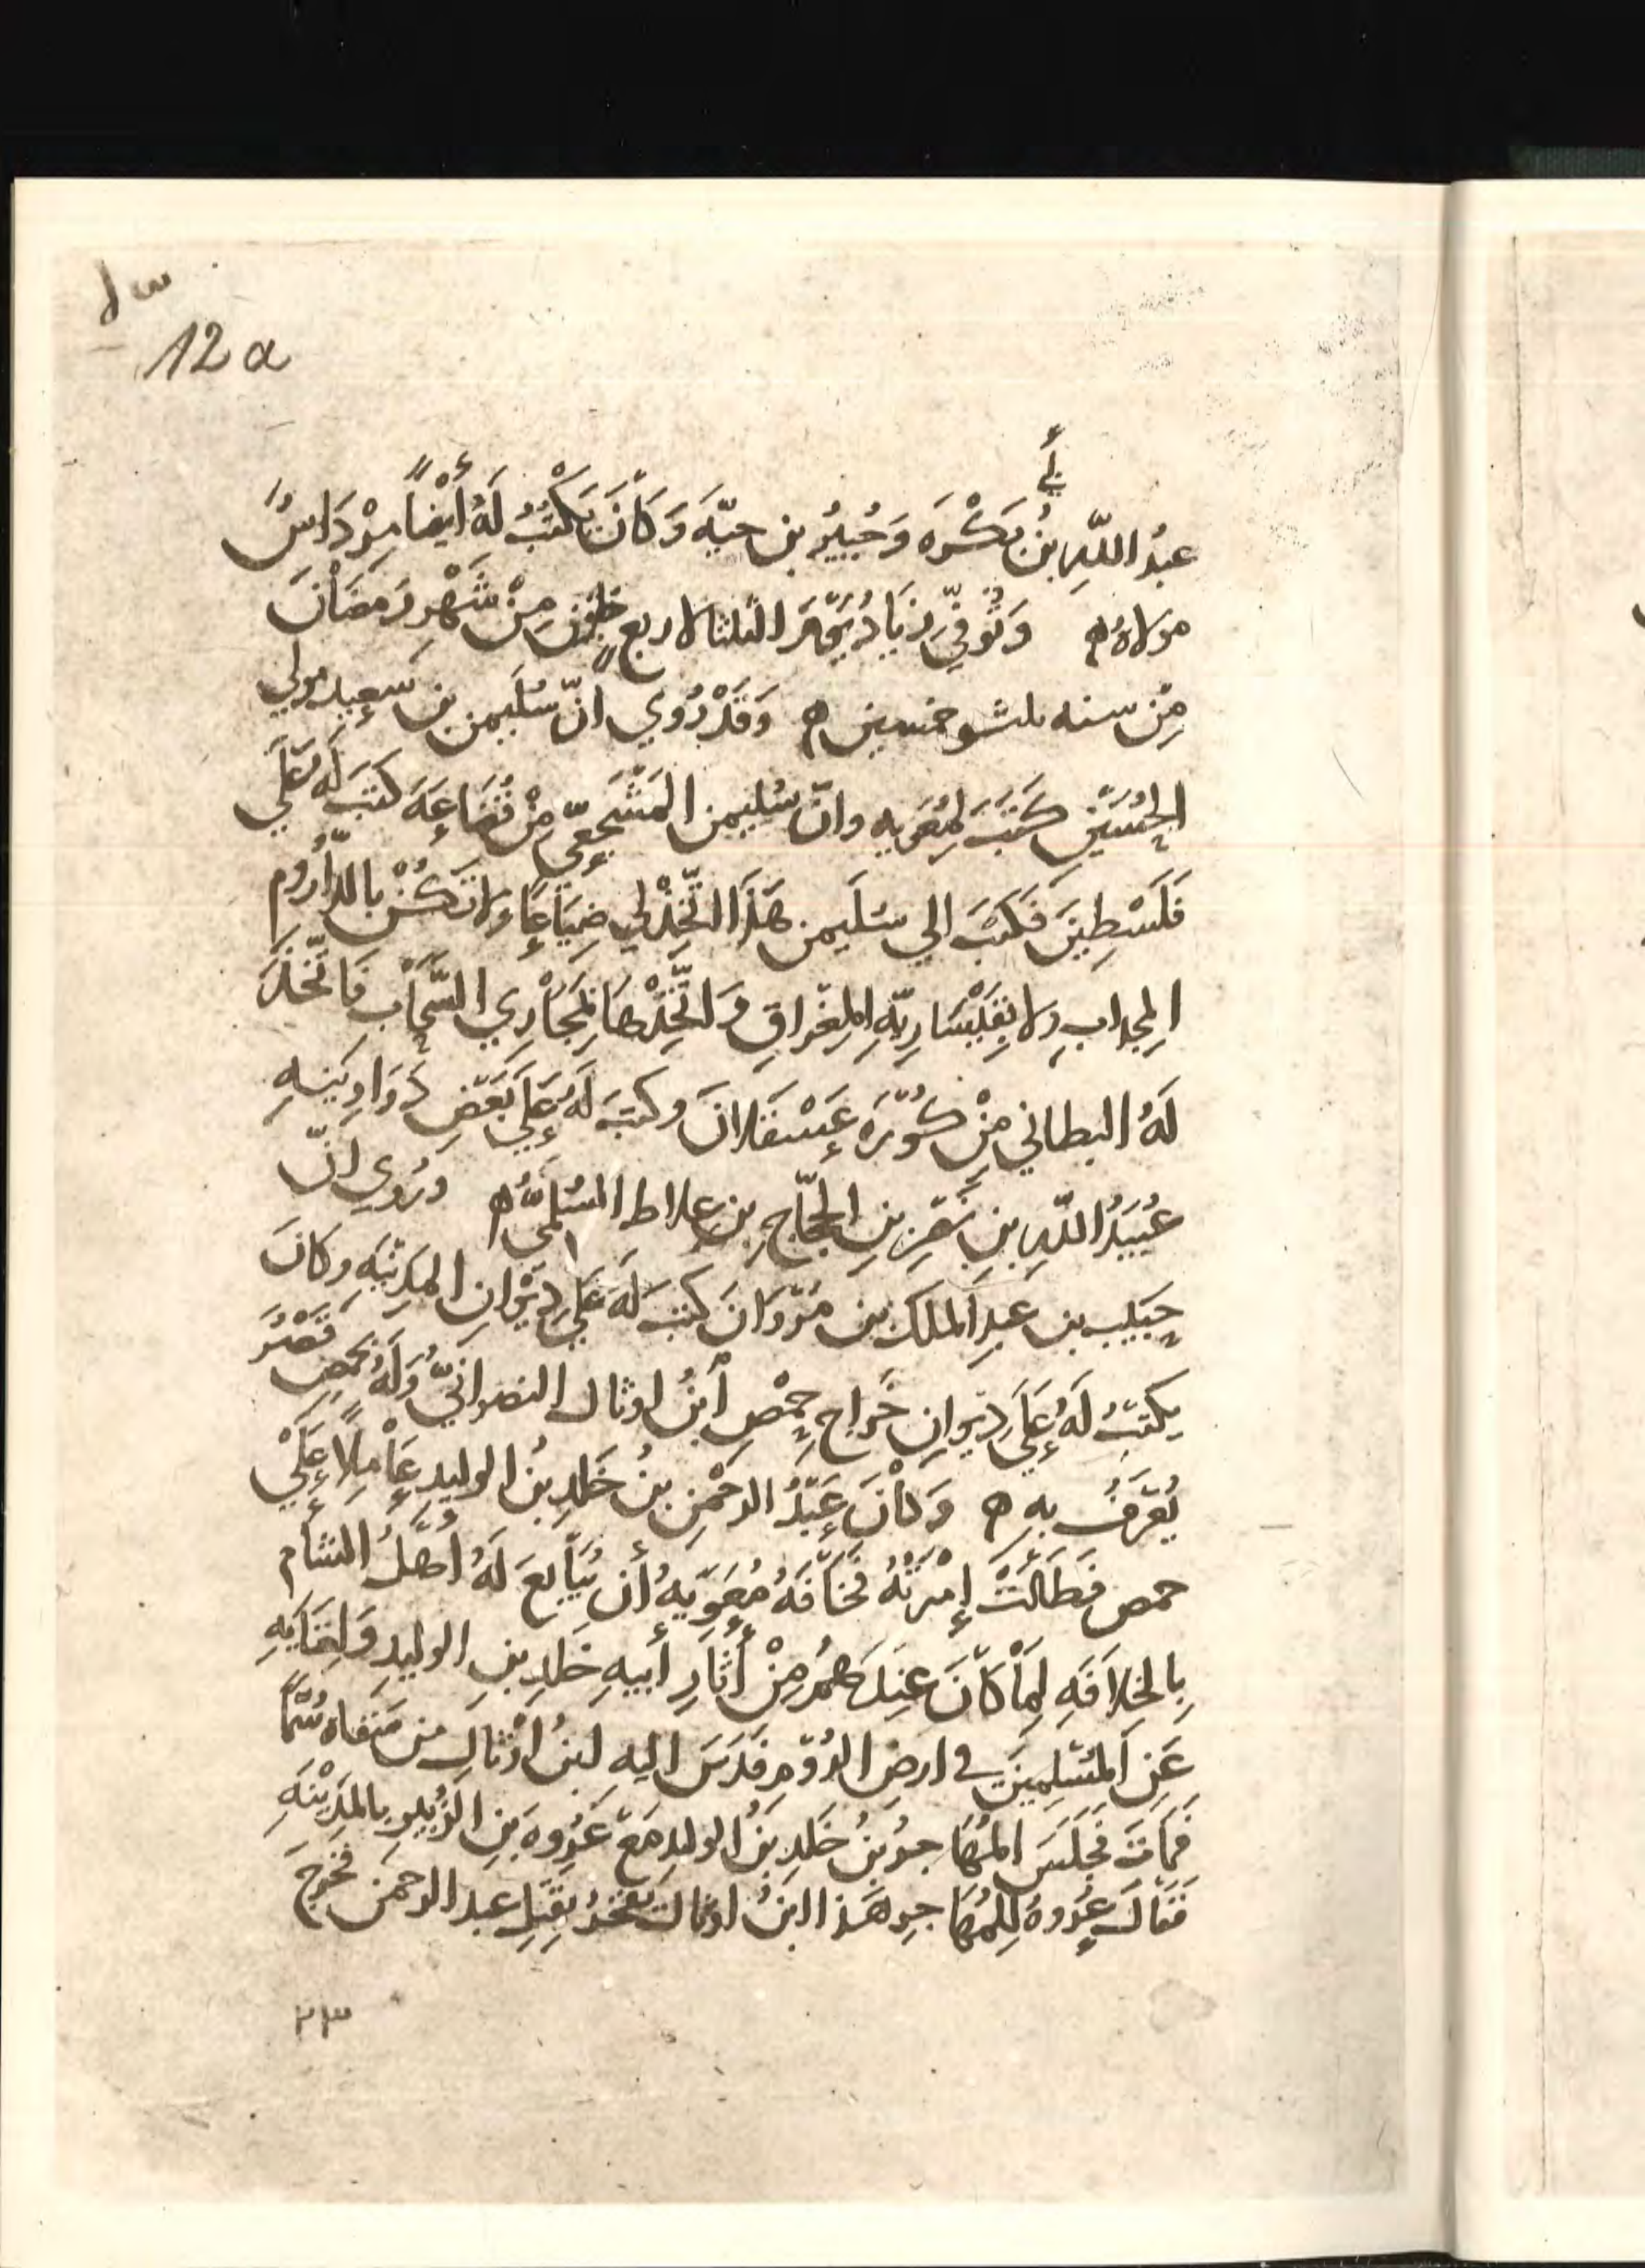 12a
أبي
عبدُ اللّهِ بنُ بَكْرَه وَجُبيرُ بن حيّةَ وَكَانَ يَكْتُبُ لَهُ أَيْضاً مِرْدَاسُ
مولاهُ ه وَتُوفِّيَ زيَادُ يَوْمَ الثلثا لاربع خلَوْنَ مِنْ شَهْرِ رَمَضَانَ
مِنْ سنه ثلث وخمسين ه وَقَدْ رُوي انّ سُلَيمن بن سَعِيد مولي
الحُسَيْنِ كَتَبَ لمُعَويه وانّ سُليمن المَشْجَعِيّ مِنْ قُضَاعَةَ كتبَ لَهُ عَلَي
فَلَسْطِينَ فَكَتَبَ الي سُلَيمن هَذَا اتَّخِذْ لي ضِيَاعًا وَلا تَكُنْ بالدَّارُوم
المِجداب ولا بِقَيْسَارِيّهِ المِغْرَاقِ وَاتَّخِذْهَا بِمَجَارِي السَّحَابِ فَاتّخَذَ
لَهُ البطاني مِنْ كُوْرَه عَسْقَلانَ وكتبَ لَهُ عَلَي بَعْضِ دَوَاوِينِهِ
عُبَيدُ اللّهِ بنِ نَصْرِ بنِ الحَجّاجِ بن علاط السُلَمِيُّ ه ورُوي انّ
حَبيب بن عبدِ الملك بن مَرْوَانَ كتبَ لَهُ عَلَي دِيْوَانِ المَدِينَهِ وَكانَ
يكتبُ لَهُ عَلَي دِيْوانِ خَرَاجِ حِمْصِ ابنُ اوثال النصرانيّ وَلَهُ بحمص قَصْرُ
يُعْرَفُ بِهِ ه وَكَانَ عَبْدُ الرحْمنِ بنُ خَلدِ بنُ الوليد عَامِلًا عَلَي
حمص فطَالَتْ إِمْرَتُهُ فخَافَهُ مُعَوِيهُ أن يُبَايعَ لَهُ أهلُ الشام
بِالخِلافَهِ لِمَا كانَ عِندَهمُ مِنْ أثارِ أَبيهِ خَلدِ بنِ الوليدِ وَلِغَنَايِهِ
عَنِ المُسْلِمِينَ في ارضِ الرُوْمِ فَدَسَ اليهِ ابنُ اوْثالِ من سَقاه سُمّاً
فمَاتَ فجَلَسَ المُهَاجرُ بنُ خَلدِ بنُ الوليدِ مَعَ عُرْوه بنِ الزُبيرِ بالمَدِيْنَهِ
فقَالَ عُروهُ لِلمُهَاجرِ هَذا ابنُ اوثال يفخرُ بِقَتلِ عبد الرحمن فخرَجَ
٢٣